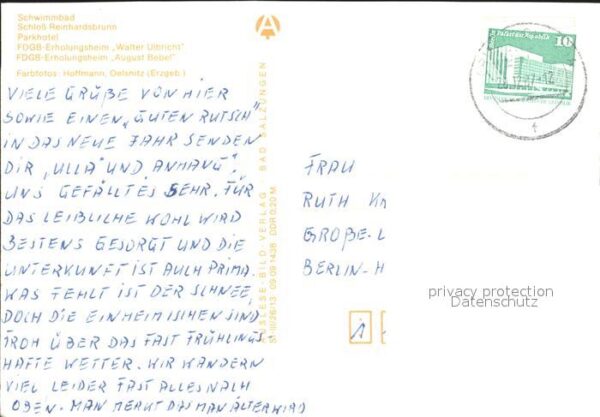 Schwimmbad
Schloß Reinhardsbrunn
Parkhotel
FDGB-Erholungsheim „Walter Ulbricht"
FDGB-Erholungsheim „August Bebel"
Farbfotos: Hoffmann, Oelsnitz (Erzgeb.)
VIELE GRÜßE VON HIER
SOWIE EINEN „GUTEN RUTSCH"
IN DAS NEUE JAHR SENDEN
DIR „ULLA" UND ANHANG".
UNS GEFÄLLT ES SEHR. FÜR
DAS LEIBLICHE WOHL WIRD
BESTENS GESORGT UND DIE
UNTERKUNFT IST AUCH PRIMA.
WAS FEHLT IST DER SCHNEE,
DOCH DIE EINHEIMISCHEN SIND
FROH ÜBER DAS FAST FRÜHLINGS
HAFTE WETTER. WIR WANDERN
VIEL LEIDER FAST ALLES NACH
OBEN. MAN MERKT DAS MAN ÄLTER WIRD
AUSLESE-BILD-VERLAG · BAD SALZUNGEN
09 09 1438 DDR 0,20 M
Palast der Republik
10
FRAU
RUTH Kn
GROßE-L
BERLIN-H
privacy protection
Datenschutz
1